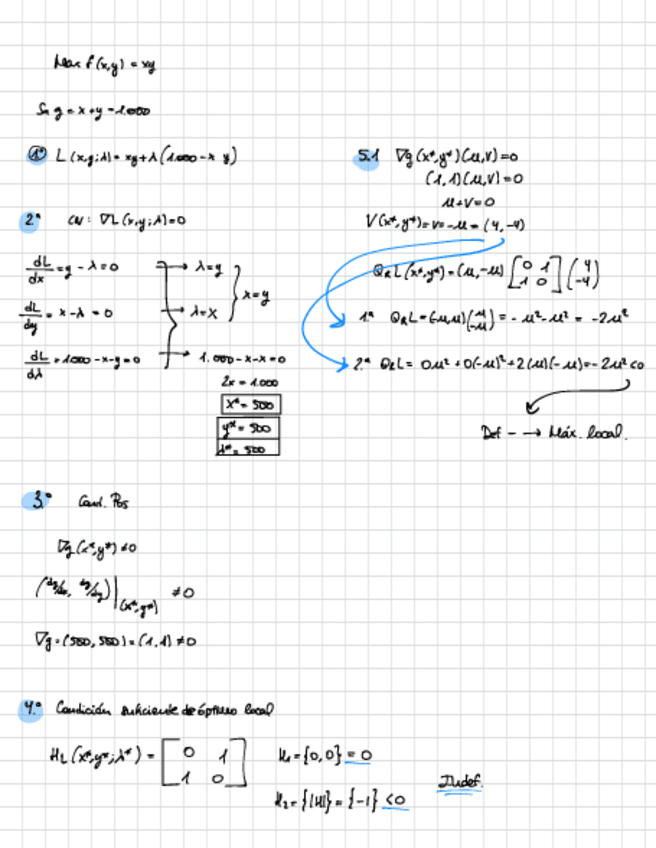 Max f(x,y) = xy
Sa g = x+y = 1.000
1º L(x,y;λ) = xy+λ(1.000-x y)
2.º CN: ∇L(x,y;λ)=0
dL/dx = y - λ = 0 → λ=y
x=y
dL/dy = x-λ = 0 → λ=x
dL/dλ = 1000-x-y=0 → 1.000-x-x=0
2x = 1.000
x* = 500
y* = 500
λ* = 500
3.º Cond. Pos
∇g(x*,y*)≠0
(dg/dx, dg/dy)|(x*,y*) ≠0
∇g=(500,500)=(1,1)≠0
4.º Condición suficiente de óptimo local
HL(x*,y*;λ*) = [0 1
1 0]
H₁={0,0}=0
H₂={|H|}={-1}<0
Indef.
5.1 ∇g(x*,y*)(μ,v)=0
(1,1)(μ,v)=0
μ+v=0
V(x*,y*)=v=-μ=(μ,-μ)
QRL(x*,y*)=(μ,-μ)[0 1
1 0](μ
-μ)
1.º QRL=(-μ,μ)(μ
-μ)=-μ²-μ²=-2μ²
2.º QRL= 0μ²+0(-μ)²+2(μ)(-μ)=-2μ²<0
Def - → Máx. local.